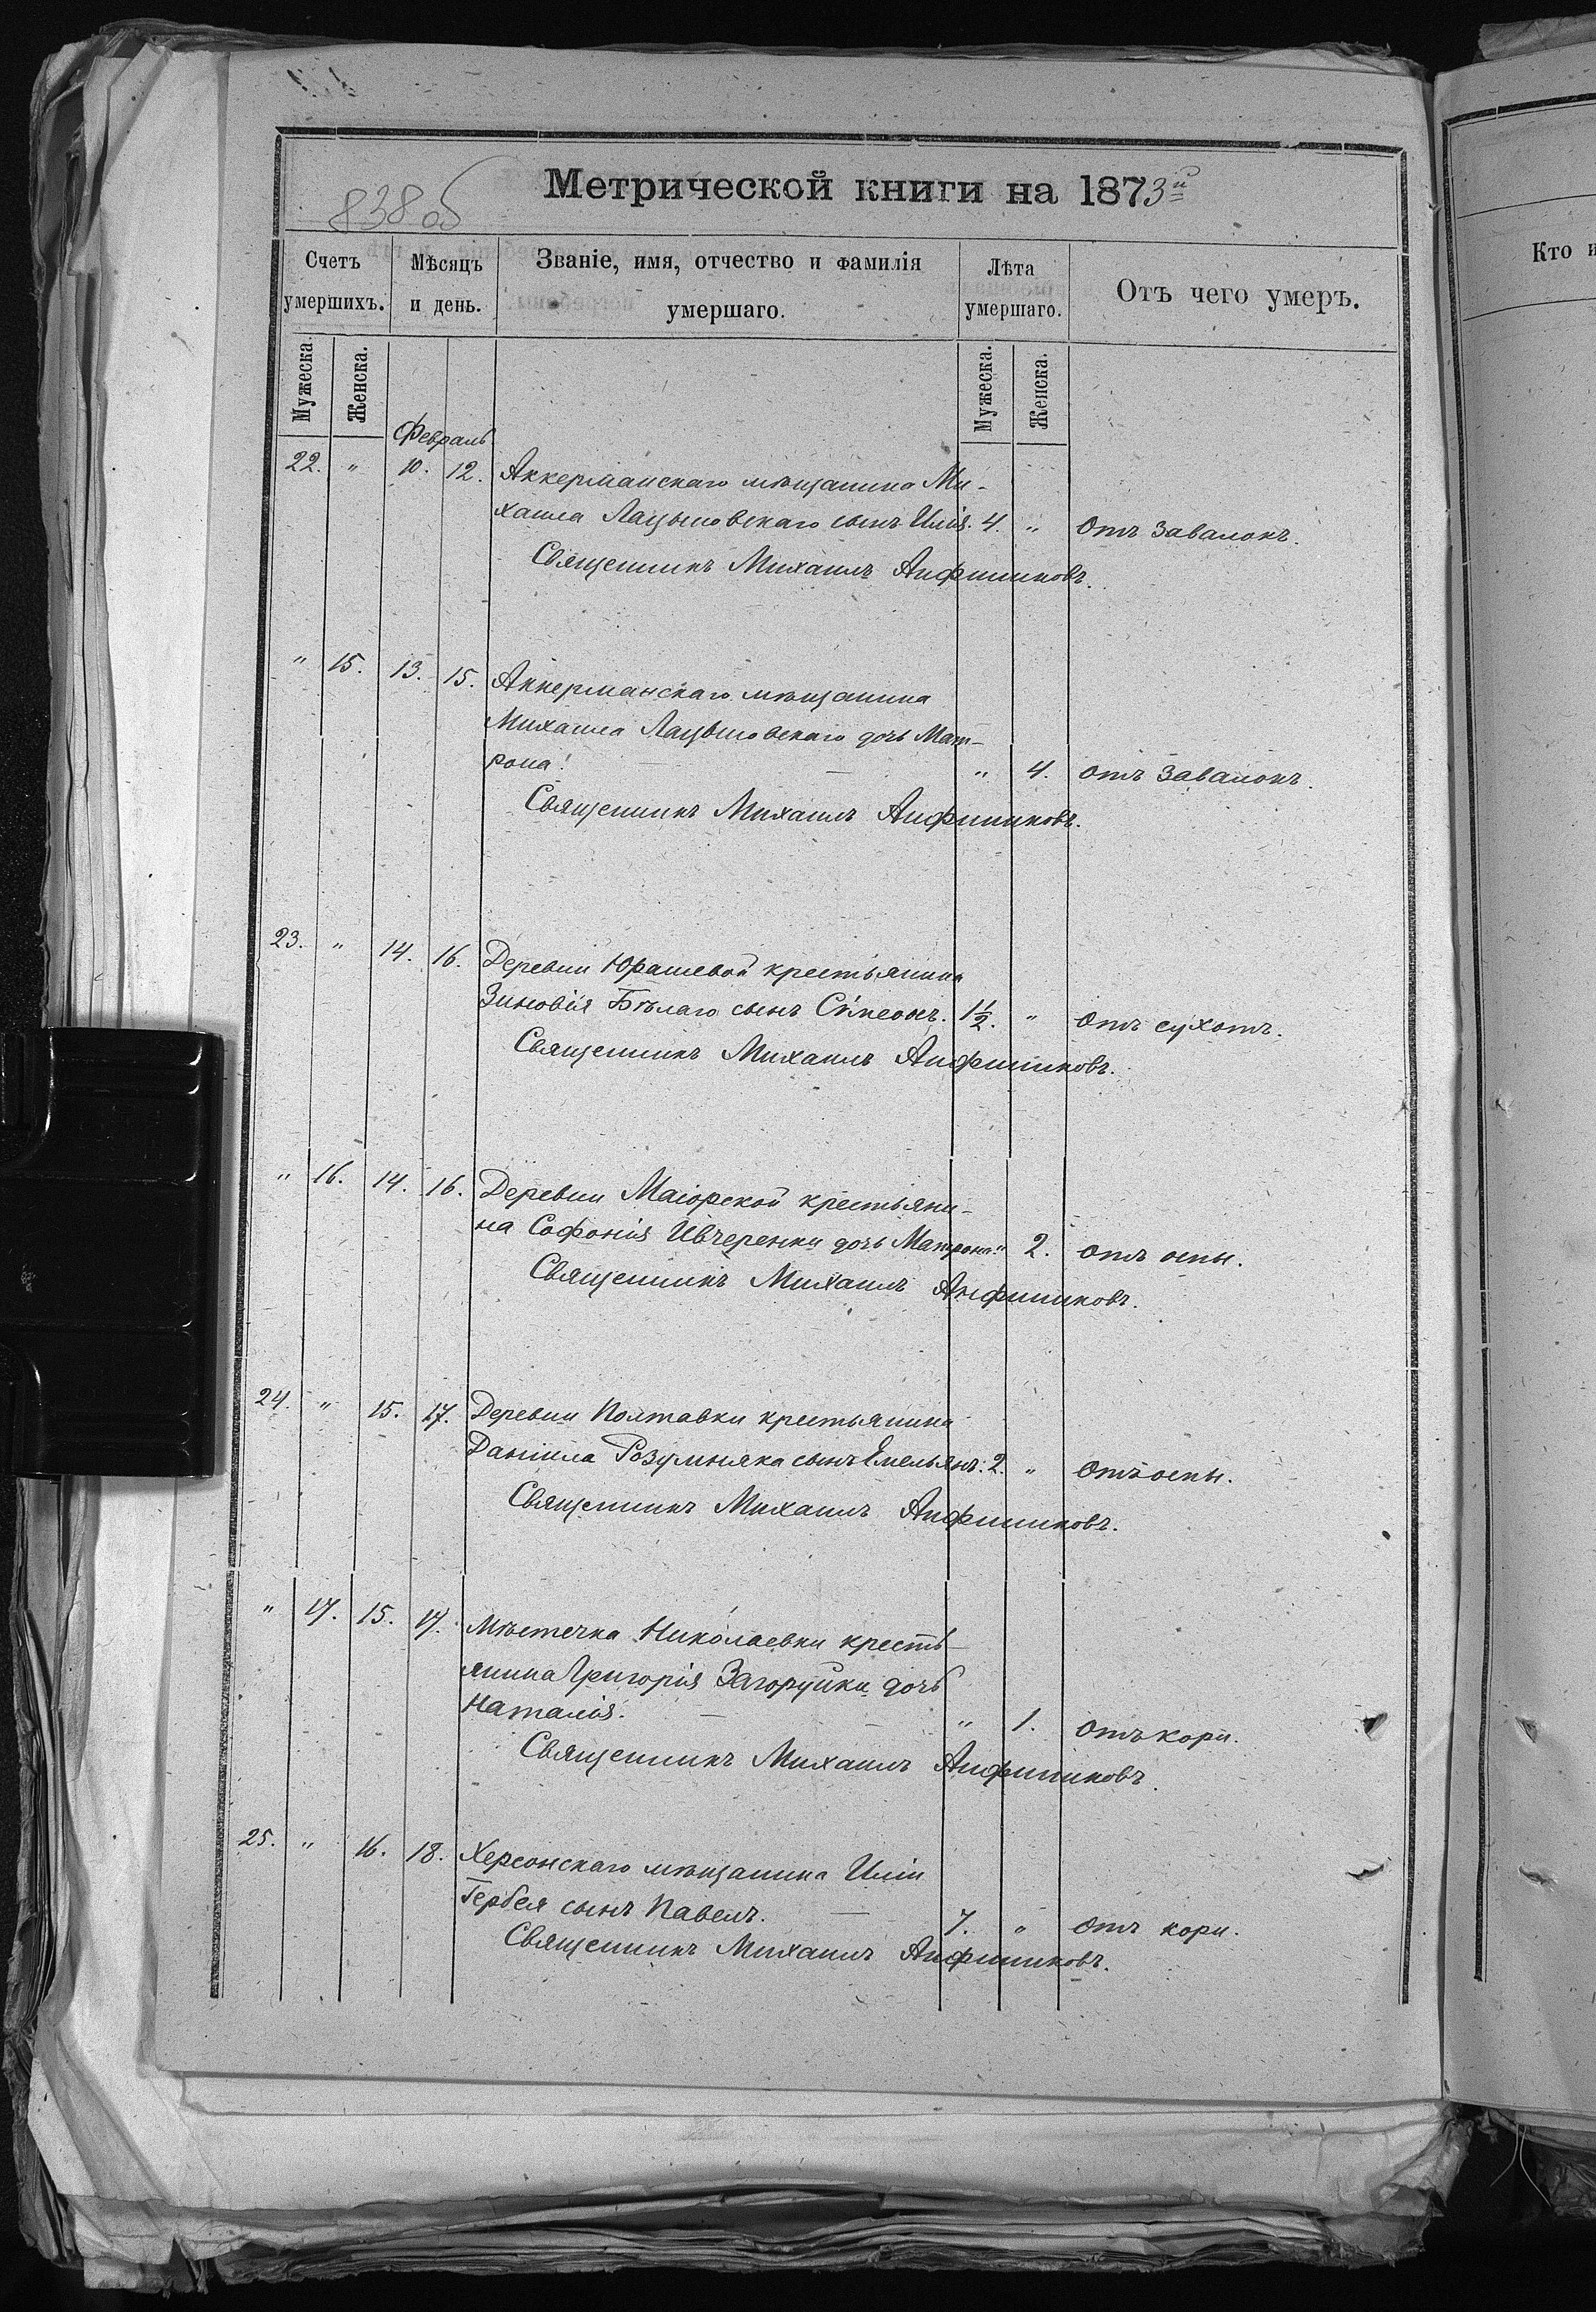 Метрической книги на 1873й
838 об
Счетъ умершихъ.
Мѣсяцъ и день.
Званіе, имя, отчество и фамилія умершаго.
Лѣта умершаго.
Отъ чего умеръ.
Кто и
Мужеска. Женска.
Мужеска. Женска.
Февраль
22. " 10. 12. Аккерманскаго мѣщанина Ми-
хаила Лацыновскаго сынъ Илія. 4. " Отъ завалокъ.
Священникъ Михаилъ Анфиниковъ.
" 15. 13. 15. Аккерманскаго мѣщанина
Михаила Лацыновскаго дочь Мат-
рона. " 4. отъ завалокъ.
Священникъ Михаилъ Анфиниковъ.
23. " 14. 16. Деревни Юрашевой крестьянина
Зиновія Бѣлаго сынъ Сѵмеонъ. 1½. " Отъ сухотъ.
Священникъ Михаилъ Анфиниковъ.
" 16. 14. 16. Деревни Маіорской крестьяни-
на Софонія Ивченренки дочь Матрона " 2. отъ оспы.
Священникъ Михаилъ Анфиниковъ.
24. " 15. 17. Деревни Полтавки крестьянина
Даніила Розумняка сынъ Емельянъ. 2. " Отъ оспы.
Священникъ Михаилъ Анфиниковъ.
" 17. 15. 17. Мѣстечка Николаевки кресть-
янина Григорія Загоруйки дочь
Наталія. " 1. Отъ кори.
Священникъ Михаилъ Анфиниковъ.
25. " 16. 18. Херсонскаго мѣщанина Иліи
Гербея сынъ Павелъ. 7. " Отъ кори.
Священникъ Михаилъ Анфиниковъ.